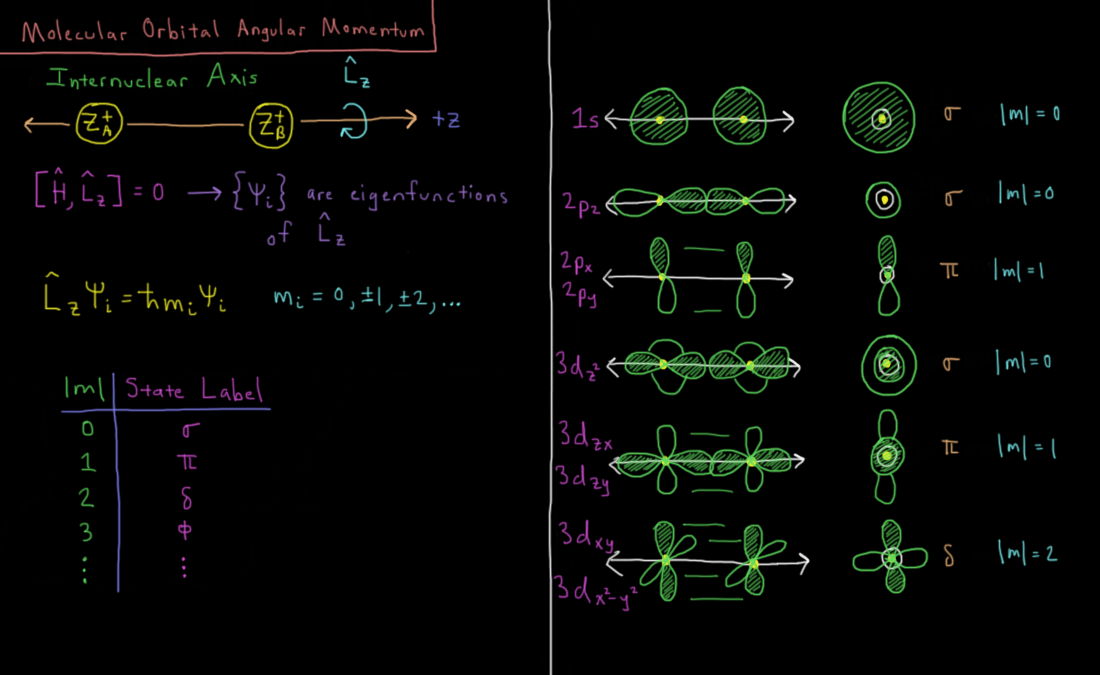 Molecular Orbital Angular Momentum
Internuclear Axis
L̂z
Z_A^+ Z_B^+ +z
[Ĥ, L̂z] = 0 → {Ψi} are eigenfunctions
of L̂z
L̂z Ψi = ħ mi Ψi mi = 0, ±1, ±2, ...
|m| State Label
0 σ
1 π
2 δ
3 Φ
⋮ ⋮
1s σ |m| = 0
2pz σ |m| = 0
2px
2py π |m| = 1
3dz² σ |m| = 0
3dzx
3dzy π |m| = 1
3dxy
3dx²-y² δ |m| = 2